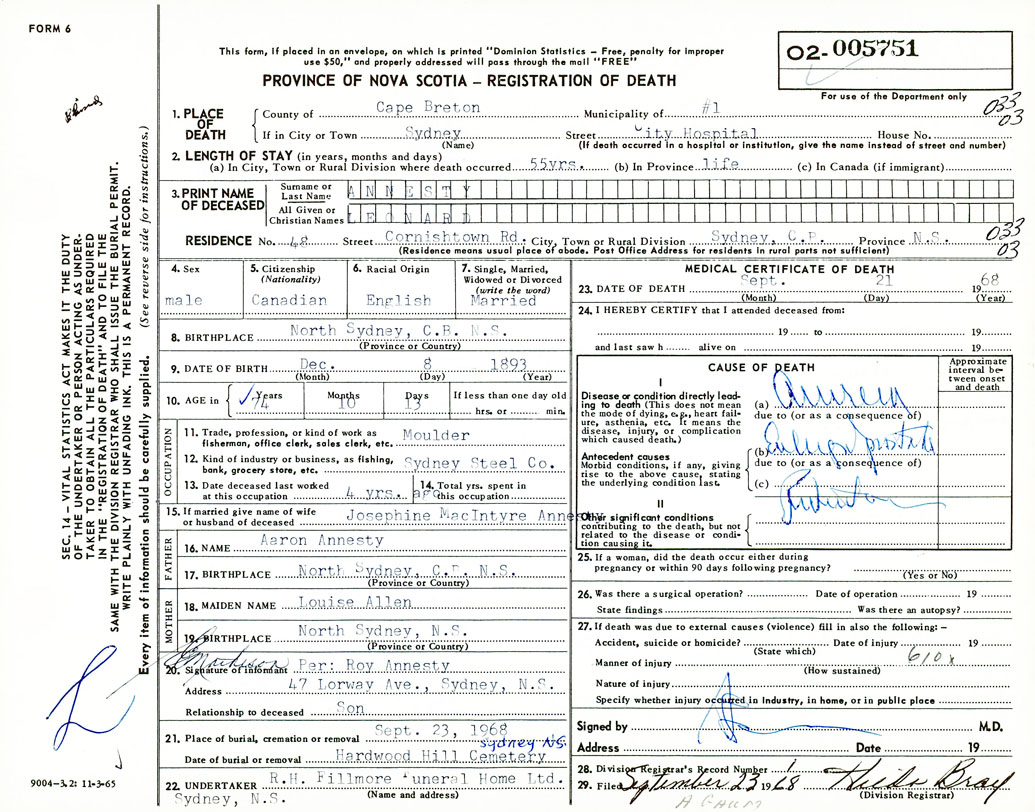 FORM 6
This form, if placed in an envelope, on which is printed "Dominion Statistics – Free, penalty for improper
use $50," and properly addressed will pass through the mail "FREE"
PROVINCE OF NOVA SCOTIA – REGISTRATION OF DEATH
02-005751
For use of the Department only
033
03
SEC. 14 – VITAL STATISTICS ACT MAKES IT THE DUTY
OF THE UNDERTAKER OR PERSON ACTING AS UNDER-
TAKER TO OBTAIN ALL THE PARTICULARS REQUIRED
IN THE "REGISTRATION OF DEATH" AND TO FILE THE
SAME WITH THE DIVISION REGISTRAR WHO SHALL ISSUE THE BURIAL PERMIT.
WRITE PLAINLY WITH UNFADING INK. THIS IS A PERMANENT RECORD.
Every item of information should be carefully supplied. (See reverse side for instructions.)
1. PLACE OF DEATH
County of Cape Breton Municipality of #1
If in City or Town Sydney Street City Hospital House No.
(Name) (If death occurred in a hospital or institution, give the name instead of street and number)
2. LENGTH OF STAY (in years, months and days)
(a) In City, Town or Rural Division where death occurred 55yrs. (b) In Province life (c) In Canada (if immigrant)
3. PRINT NAME OF DECEASED
Surname or Last Name ANNESTY
All Given or Christian Names LEONARD
RESIDENCE No. 48 Street Cornishtown Rd. City, Town or Rural Division Sydney, C.B. Province N.S.
(Residence means usual place of abode. Post Office Address for residents in rural parts not sufficient)
033
03
4. Sex
male
5. Citizenship
(Nationality)
Canadian
6. Racial Origin
English
7. Single, Married,
Widowed or Divorced
(write the word)
Married
8. BIRTHPLACE North Sydney, C.B. N.S.
(Province or Country)
9. DATE OF BIRTH Dec. 8 1893
(Month) (Day) (Year)
10. AGE in Years Months Days If less than one day old
74 10 13 hrs. or min.
OCCUPATION
11. Trade, profession, or kind of work as
fisherman, office clerk, sales clerk, etc. Moulder
12. Kind of industry or business, as fishing,
bank, grocery store, etc. Sydney Steel Co.
13. Date deceased last worked
at this occupation 4 yrs. ago
14. Total yrs. spent in
this occupation
15. If married give name of wife
or husband of deceased Josephine MacIntyre Annesty
FATHER
16. NAME Aaron Annesty
17. BIRTHPLACE North Sydney, C.B. N.S.
(Province or Country)
MOTHER
18. MAIDEN NAME Louise Allen
19. BIRTHPLACE North Sydney, N.S.
(Province or Country)
20. Signature of informant Per: Roy Annesty
Address 47 Lorway Ave., Sydney, N.S.
Relationship to deceased Son
21. Place of burial, cremation or removal Sept. 23, 1968
Sydney NS.
Date of burial or removal Hardwood Hill Cemetery
22. UNDERTAKER R.H. Fillmore Funeral Home Ltd.
(Name and address)
Sydney, N.S.
9004–3.2: 11-3-65
MEDICAL CERTIFICATE OF DEATH
23. DATE OF DEATH Sept. 21 1968
(Month) (Day) (Year)
24. I HEREBY CERTIFY that I attended deceased from:
19 to 19
and last saw h alive on 19
CAUSE OF DEATH
Approximate
interval be-
tween onset
and death
I
Disease or condition directly lead-
ing to death (This does not mean
the mode of dying, e.g., heart fail-
ure, asthenia, etc. It means the
disease, injury, or complication
which caused death.)
(a)
due to (or as a consequence of)
Antecedent causes
Morbid conditions, if any, giving
rise to the above cause, stating
the underlying condition last.
(b)
due to (or as a consequence of)
(c)
II
Other significant conditions
contributing to the death, but not
related to the disease or condi-
tion causing it.
25. If a woman, did the death occur either during
pregnancy or within 90 days following pregnancy?
(Yes or No)
26. Was there a surgical operation? Date of operation 19
State findings Was there an autopsy?
27. If death was due to external causes (violence) fill in also the following: –
Accident, suicide or homicide? Date of injury 19
(State which)
Manner of injury 610x
(How sustained)
Nature of injury
Specify whether injury occurred in Industry, in home, or in public place
Signed by M.D.
Address Date 19
28. Division Registrar's Record Number
29. Filed September 23 1968 Hilda Bray
(Division Registrar)